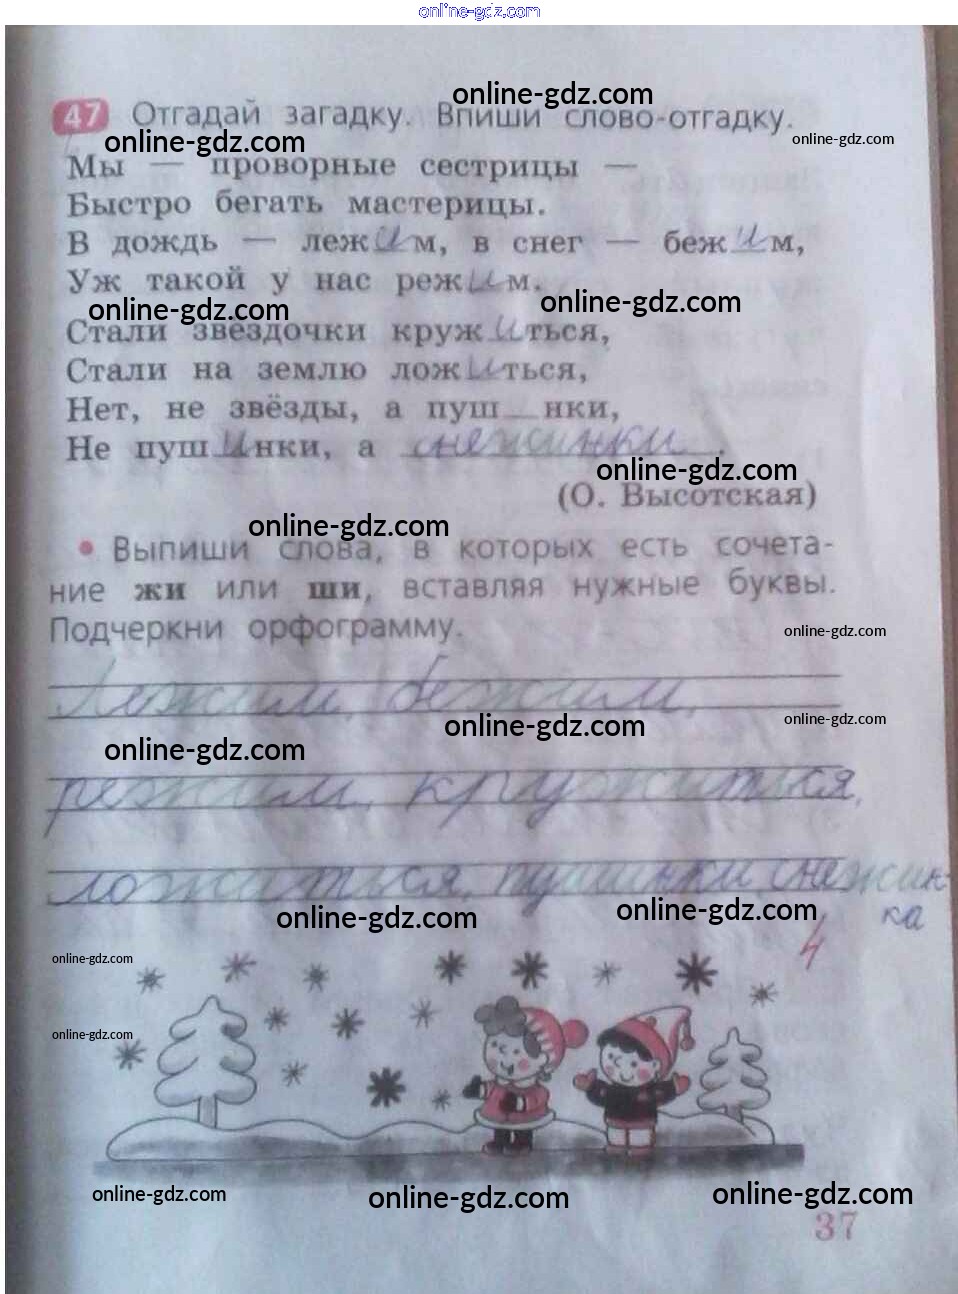 online-gdz.com
online-gdz.com
47 Отгадай загадку. Впиши слово-отгадку.
online-gdz.com
online-gdz.com
Мы — проворные сестрицы —
Быстро бегать мастерицы.
В дождь — лежим, в снег — бежим,
Уж такой у нас режим.
online-gdz.com
online-gdz.com
Стали звёздочки кружиться,
Стали на землю ложиться,
Нет, не звёзды, а пуш_нки,
Не пушинки, а снежинки.
online-gdz.com
(О. Высотская)
online-gdz.com
• Выпиши слова, в которых есть сочета-
ние жи или ши, вставляя нужные буквы.
Подчеркни орфограмму.
online-gdz.com
Лежим, бежим,
online-gdz.com
online-gdz.com
online-gdz.com
режим, кружиться,
ложиться, пушинки, снежин-
ка
online-gdz.com
online-gdz.com
4
online-gdz.com
online-gdz.com
online-gdz.com
online-gdz.com
online-gdz.com
37